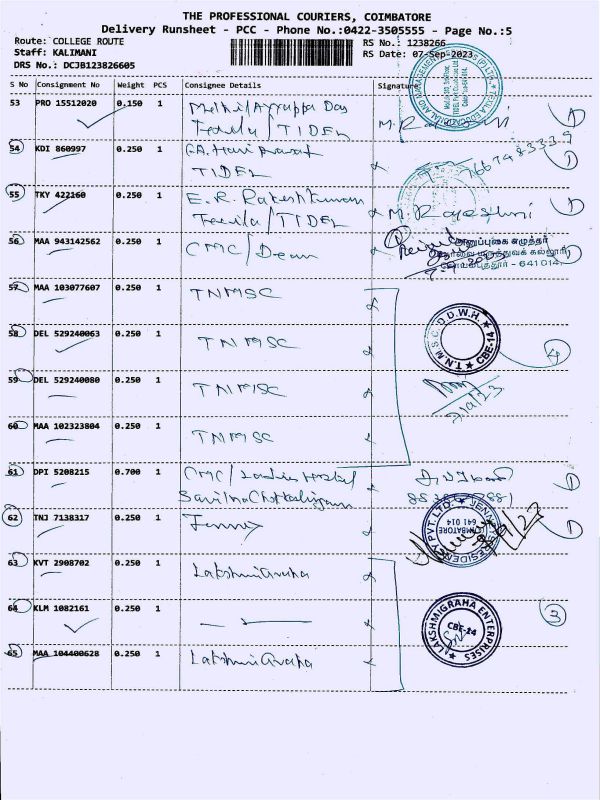 THE PROFESSIONAL COURIERS, COIMBATORE
Delivery Runsheet - PCC - Phone No.:0422-3505555 - Page No.:5
Route: COLLEGE ROUTE
RS No.: 1238266
Staff: KALIMANI
RS Date: 07-Sep-2023
DRS No.: DCJB123826605
S No Consignment No Weight PCS Consignee Details Signature
53 PRO 15512020 0.150 1
Tecila/TIDEL
54 KDI 860997 0.250 1
TIDEL
55 TKY 422160 0.250 1 E. R. Rakesh Kumar
Tecila/TIDEL M. Rajeshwi
56 MAA 943142562 0.250 1 CMC/Dean
அனுப்புகை எழுத்தர்
மருத்துவக் கல்லூரி
கோயம்புத்தூர் - 641 014
57 MAA 103077607 0.250 1 TNMSC
58 DEL 529240063 0.250 1 TNMSC
T.N.M.S.C. D.D.W.H. CBE-14
4
59 DEL 529240080 0.250 1 TNMSC
60 MAA 102323804 0.250 1 TNMSC
61 DPI 5208215 0.700 1 CMC/ Ladies Hostel
62 TNJ 7138317 0.250 1 Jenney
JENNEY RESIDENCY PVT. LTD. COIMBATORE 641 014
63 KVT 2908702 0.250 1 Lakshmi Graha
64 KLM 1082161 0.250 1
LAKSHMIGRAHA ENTERPRISES CBE-14
3
65 MAA 104400628 0.250 1 Lakshmi Graha